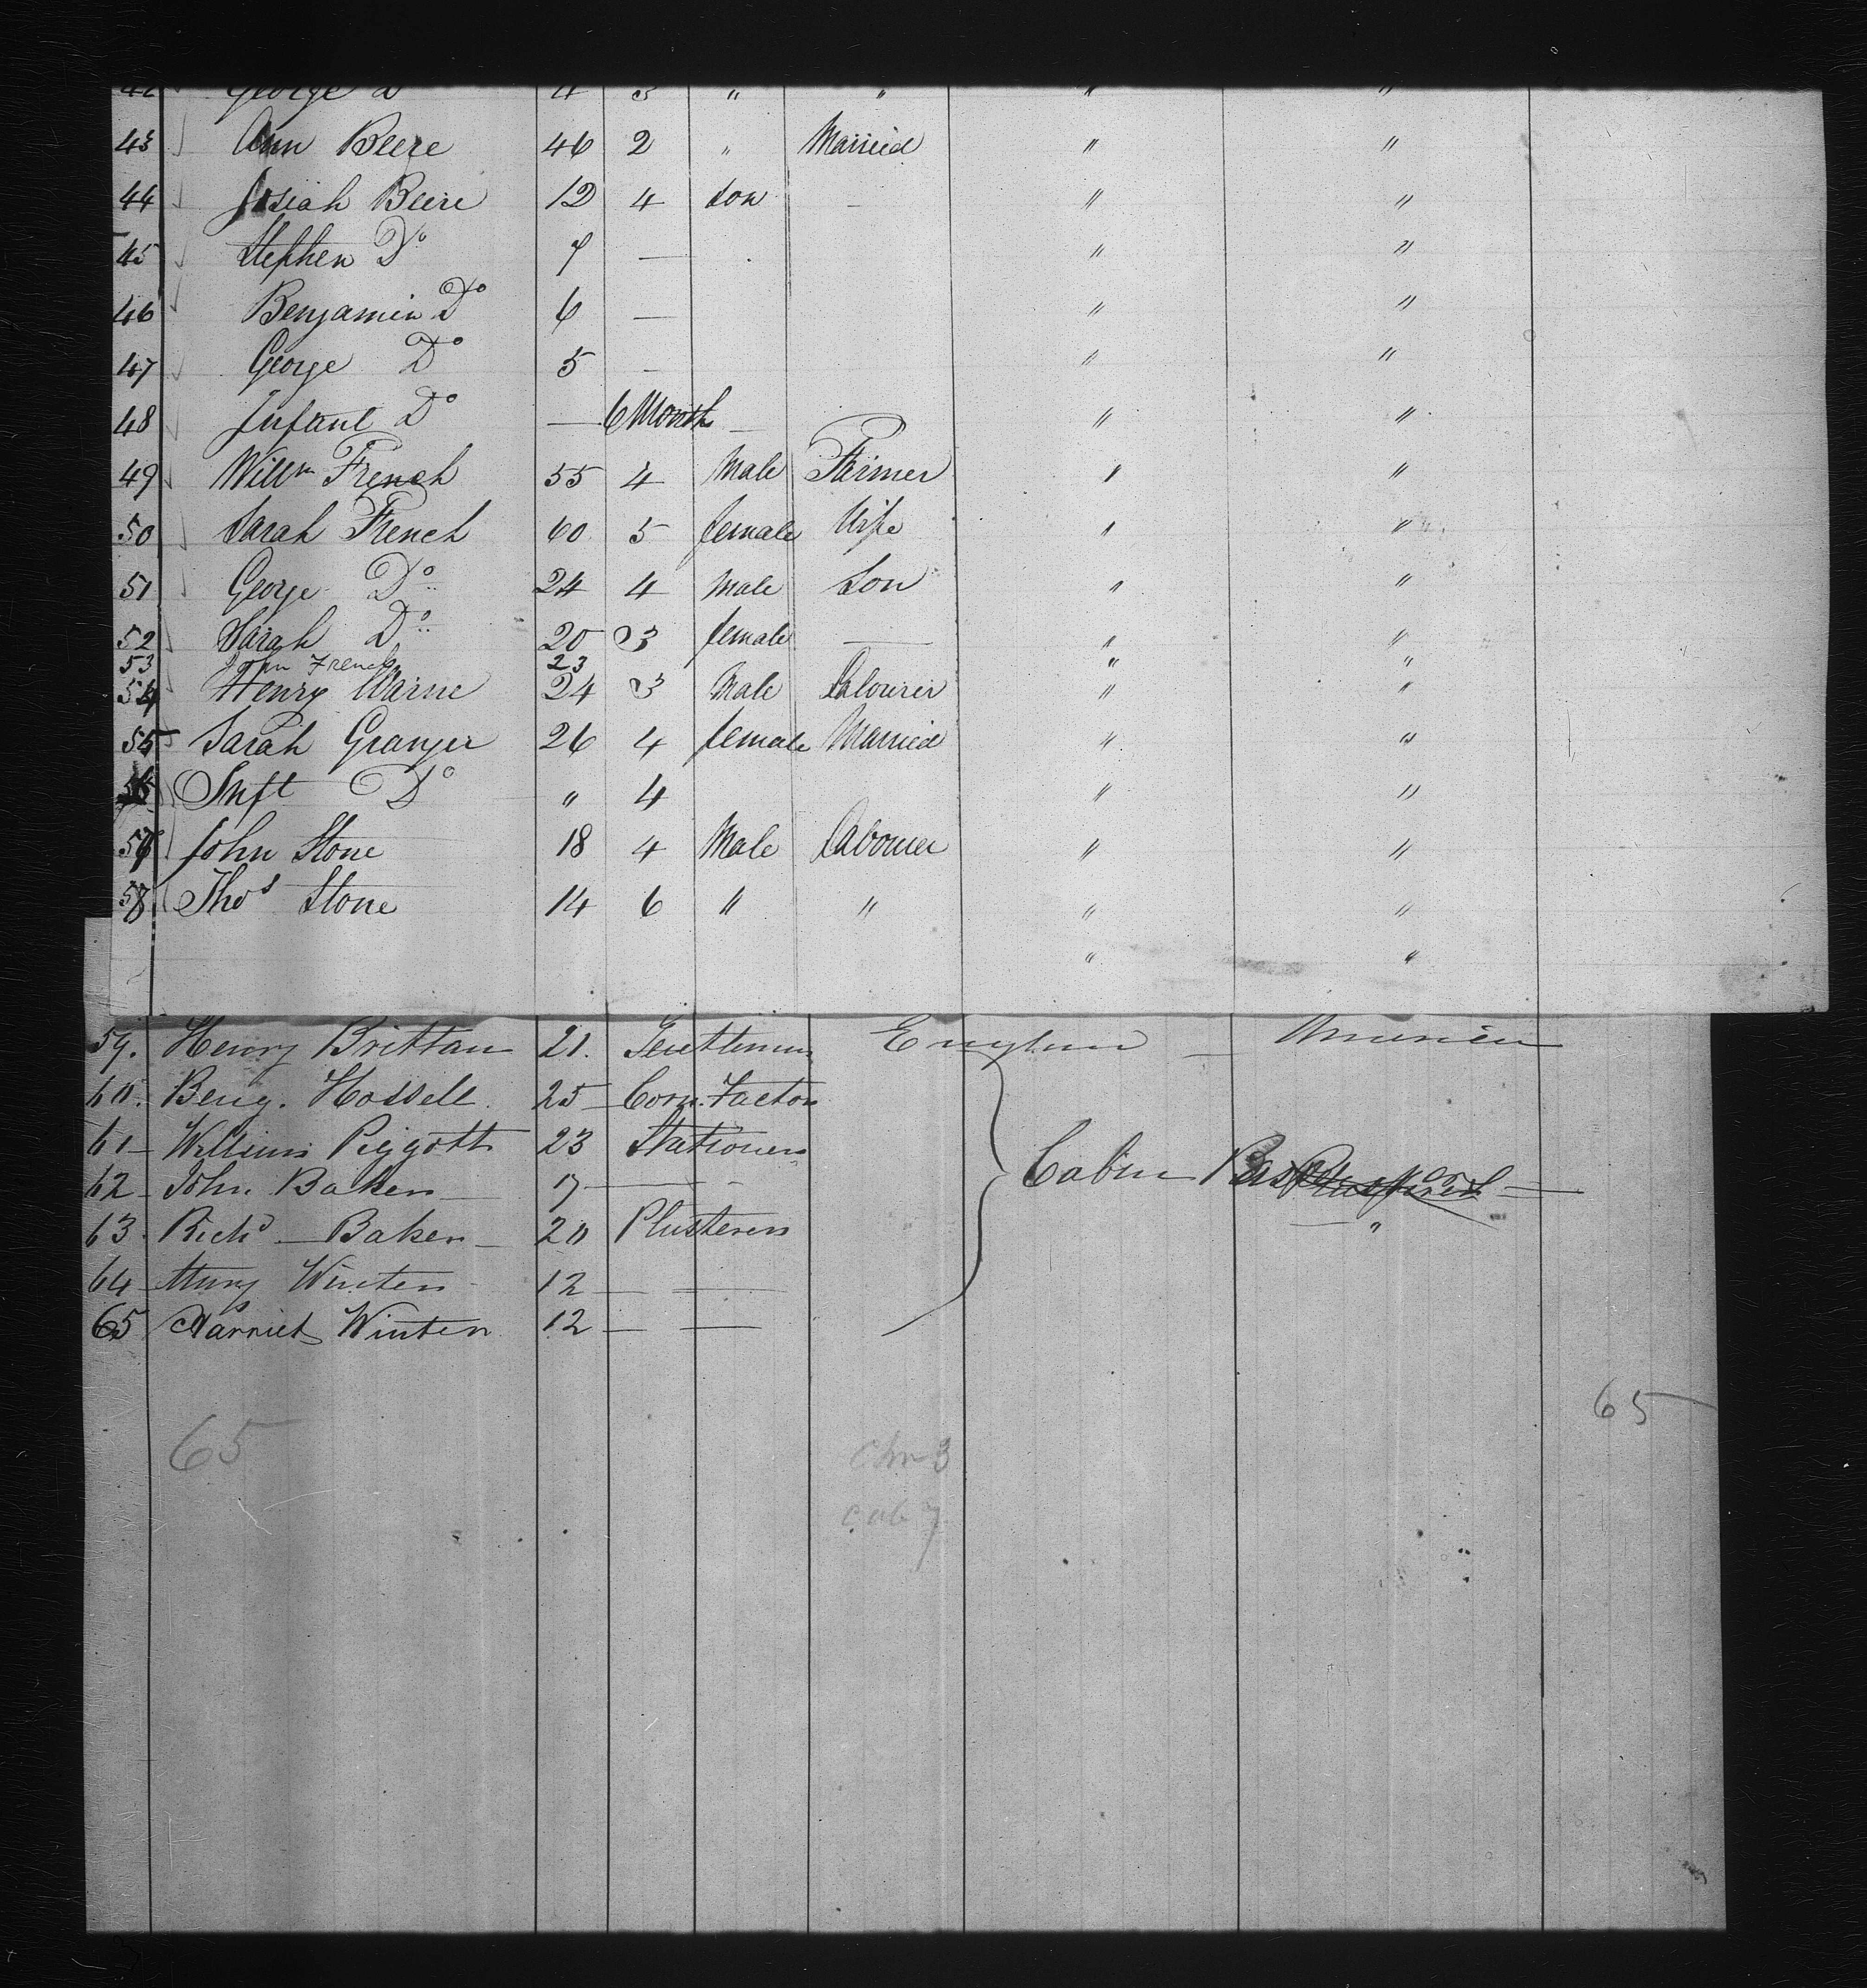 42 George D° 4 3 " " " "
43 Ann Beere 46 2 " Married " "
44 Josiah Beere 12 4 son — " "
45 Stephen D° 7 — " "
46 Benjamin D° 6 — " "
47 George D° 5 — " "
48 Infant D° — 6 Month — " "
49 Willm French 55 4 Male Farmer " "
50 Sarah French 60 5 female Wife " "
51 George D° 24 4 Male Son " "
52 Sarah D° 20 3 female — " "
53 John French 23 " "
54 Henry Warne 24 3 Male Labourer " "
55 Sarah Granger 26 4 female Married " "
56 Inft D° " 4 " "
57 John Stone 18 4 Male Labourer " "
58 Thos Stone 14 6 " " " "
" "
59. Henry Brittan 21. Gentleman England — America
60. Benj. Hossell 25 — Corn Factor
61 — William Piggott 23 Stationer
62 — John Baker — 17 — Cabin
63. Richd — Baker — 20 Plasterer — "
64 — Mary Winter 12 — —
65 Harriet Winter 12 — —
65
65
chn 3
cab 7